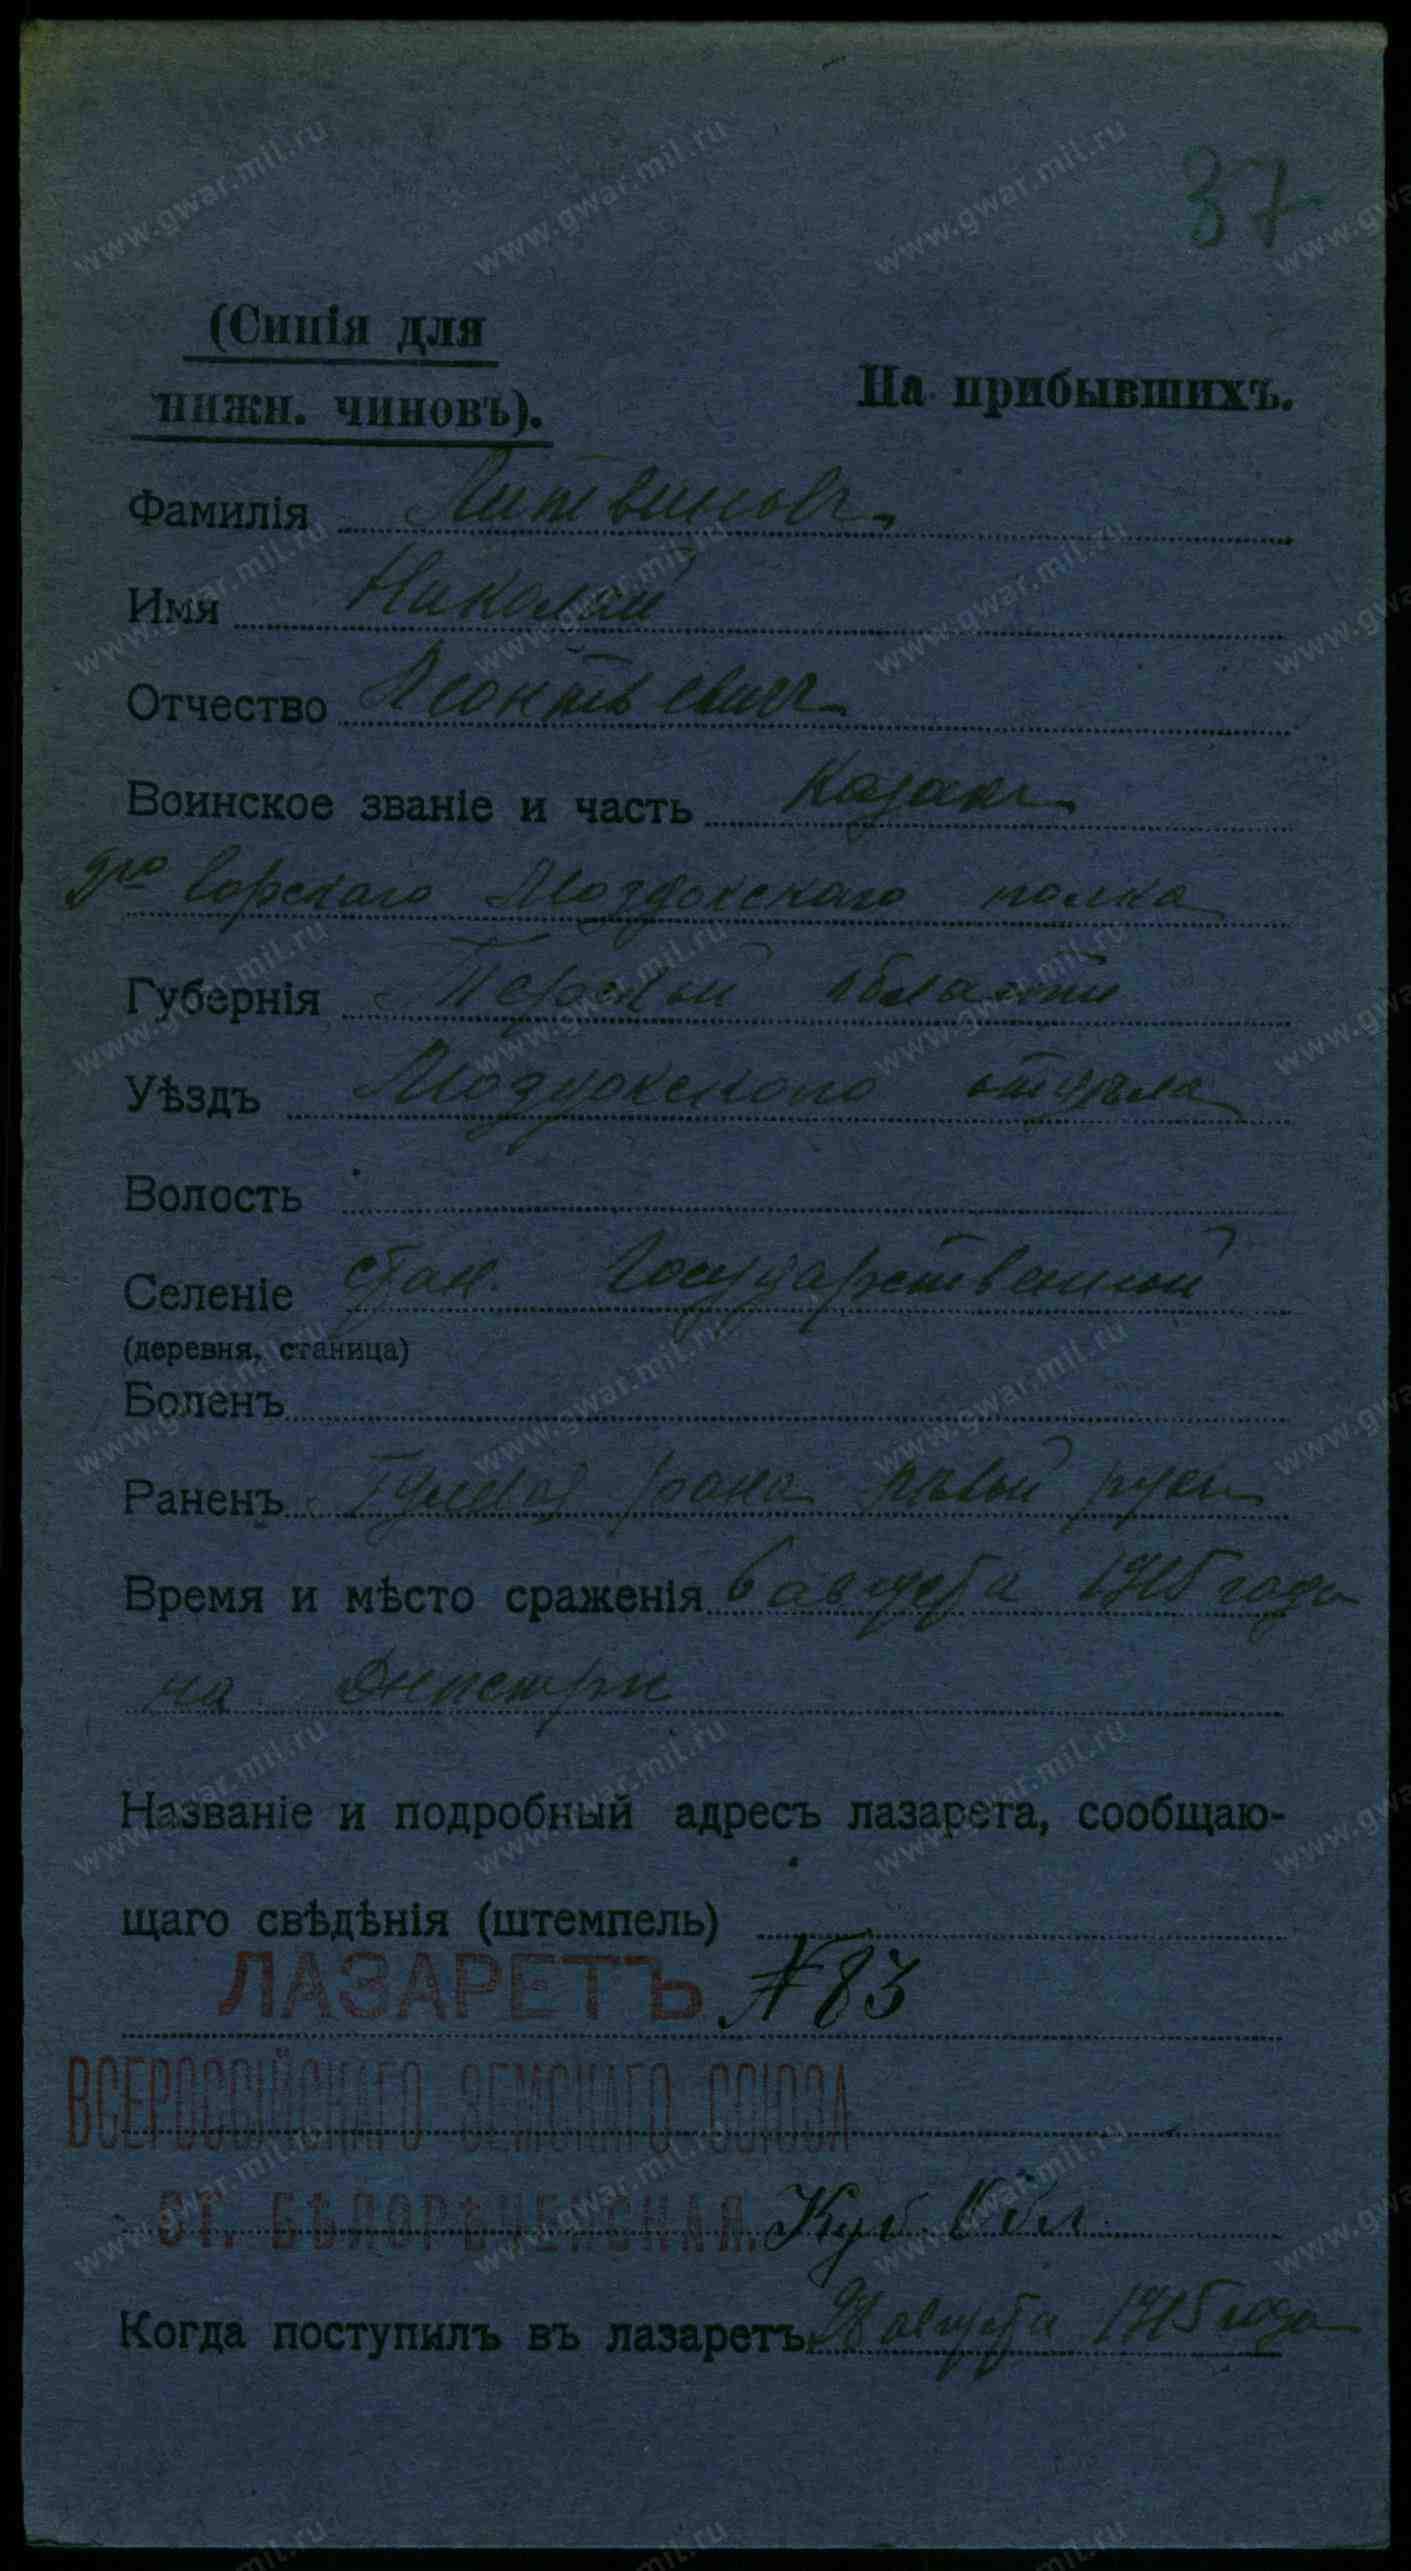 37
(Синія для
нижн. чиновъ).
На прибывшихъ.
Фамилія Литвиновъ
Имя Николай
Отчество Леонтьевичъ
Воинское званіе и часть Казакъ
Горскаго Моздокскаго полка
Губернія Терской области
Уѣздъ Моздокского отдѣла
Волость
Селеніе стан. Государственный
(деревня, станица)
Боленъ
Раненъ рана лѣвый руки
Время и мѣсто сраженія 6 августа 1915 года
на Днистри
Названіе и подробный адресъ лазарета, сообщаю-
щаго свѣдѣнія (штемпель)
ЛАЗАРЕТЪ № 83
ВСЕРОССІЙСКАГО ЗЕМСКАГО СОЮЗА
СТ. БѢЛОРѢЧЕНСКАЯ. Куб. Обл.
Когда поступилъ въ лазаретъ августа 1915 года
www.gwar.mil.ru